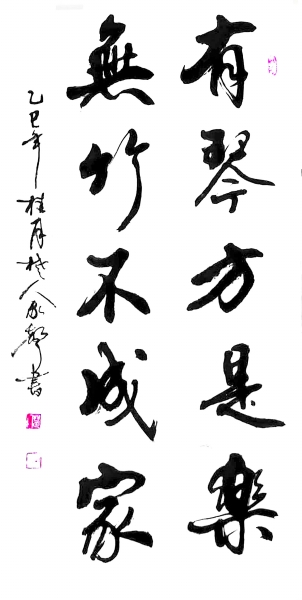 有琴方是樂
無竹不成家
乙巳年桂月 人 書